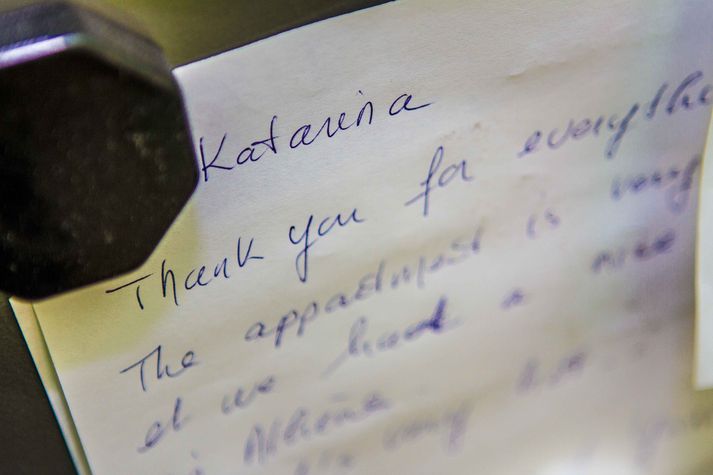 Katarina
Thank you for everythi
The appartment is very
et we had a nice
in Athena
very